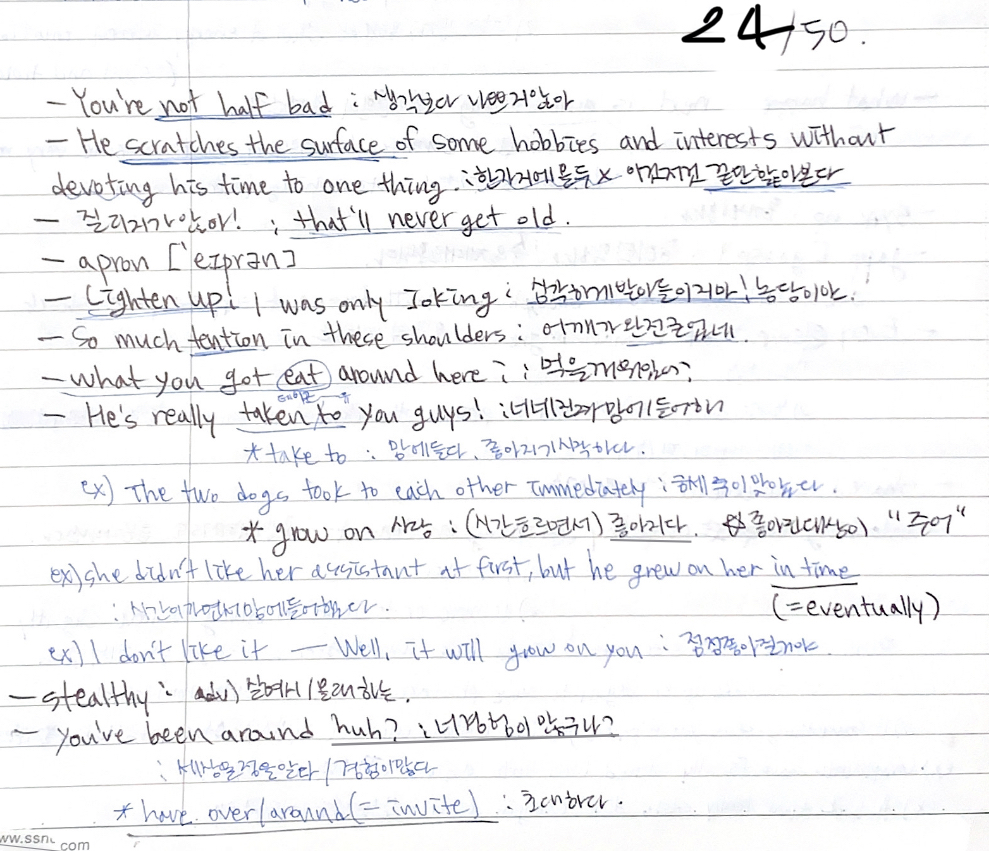 24/50.
- You're not half bad : 생각보다 나쁘지않아
- He scratches the surface of some hobbies and interests without
devoting his time to one thing. : 한가지에몰두 x 이것저것 끝만핥아본다
- 질리지가않아! : that'll never get old.
- apron ['eɪprən]
- Lighten up! I was only Joking : 심각하게받아들이지마! 농당이야.
- So much tention in these shoulders : 어깨가 완전굳었네.
- what you got eat around here : : 먹을게뭐있어?
- He's really taken to you guys! : 너네진짜맘에들어해
* take to : 맘에들다, 좋아지기시작하다.
ex) The two dogs took to each other immediately : 금세 죽이맞았다.
* grow on 사람 : (시간흐르면서) 좋아지다. 좋아진대상이 "주어"
ex) she didn't like her assistant at first, but he grew on her in time
: 시간이가면서맘에들어했다. (=eventually)
ex) I don't like it — Well, it will grow on you : 점점좋아질거야.
- stealthy : adv) 살며시/몰래하는.
- you've been around huh? : 너경험이많구나?
: 세상물정을알다/경험이많다
* have over/around (= invite) : 초대하다.
ww.ssn com